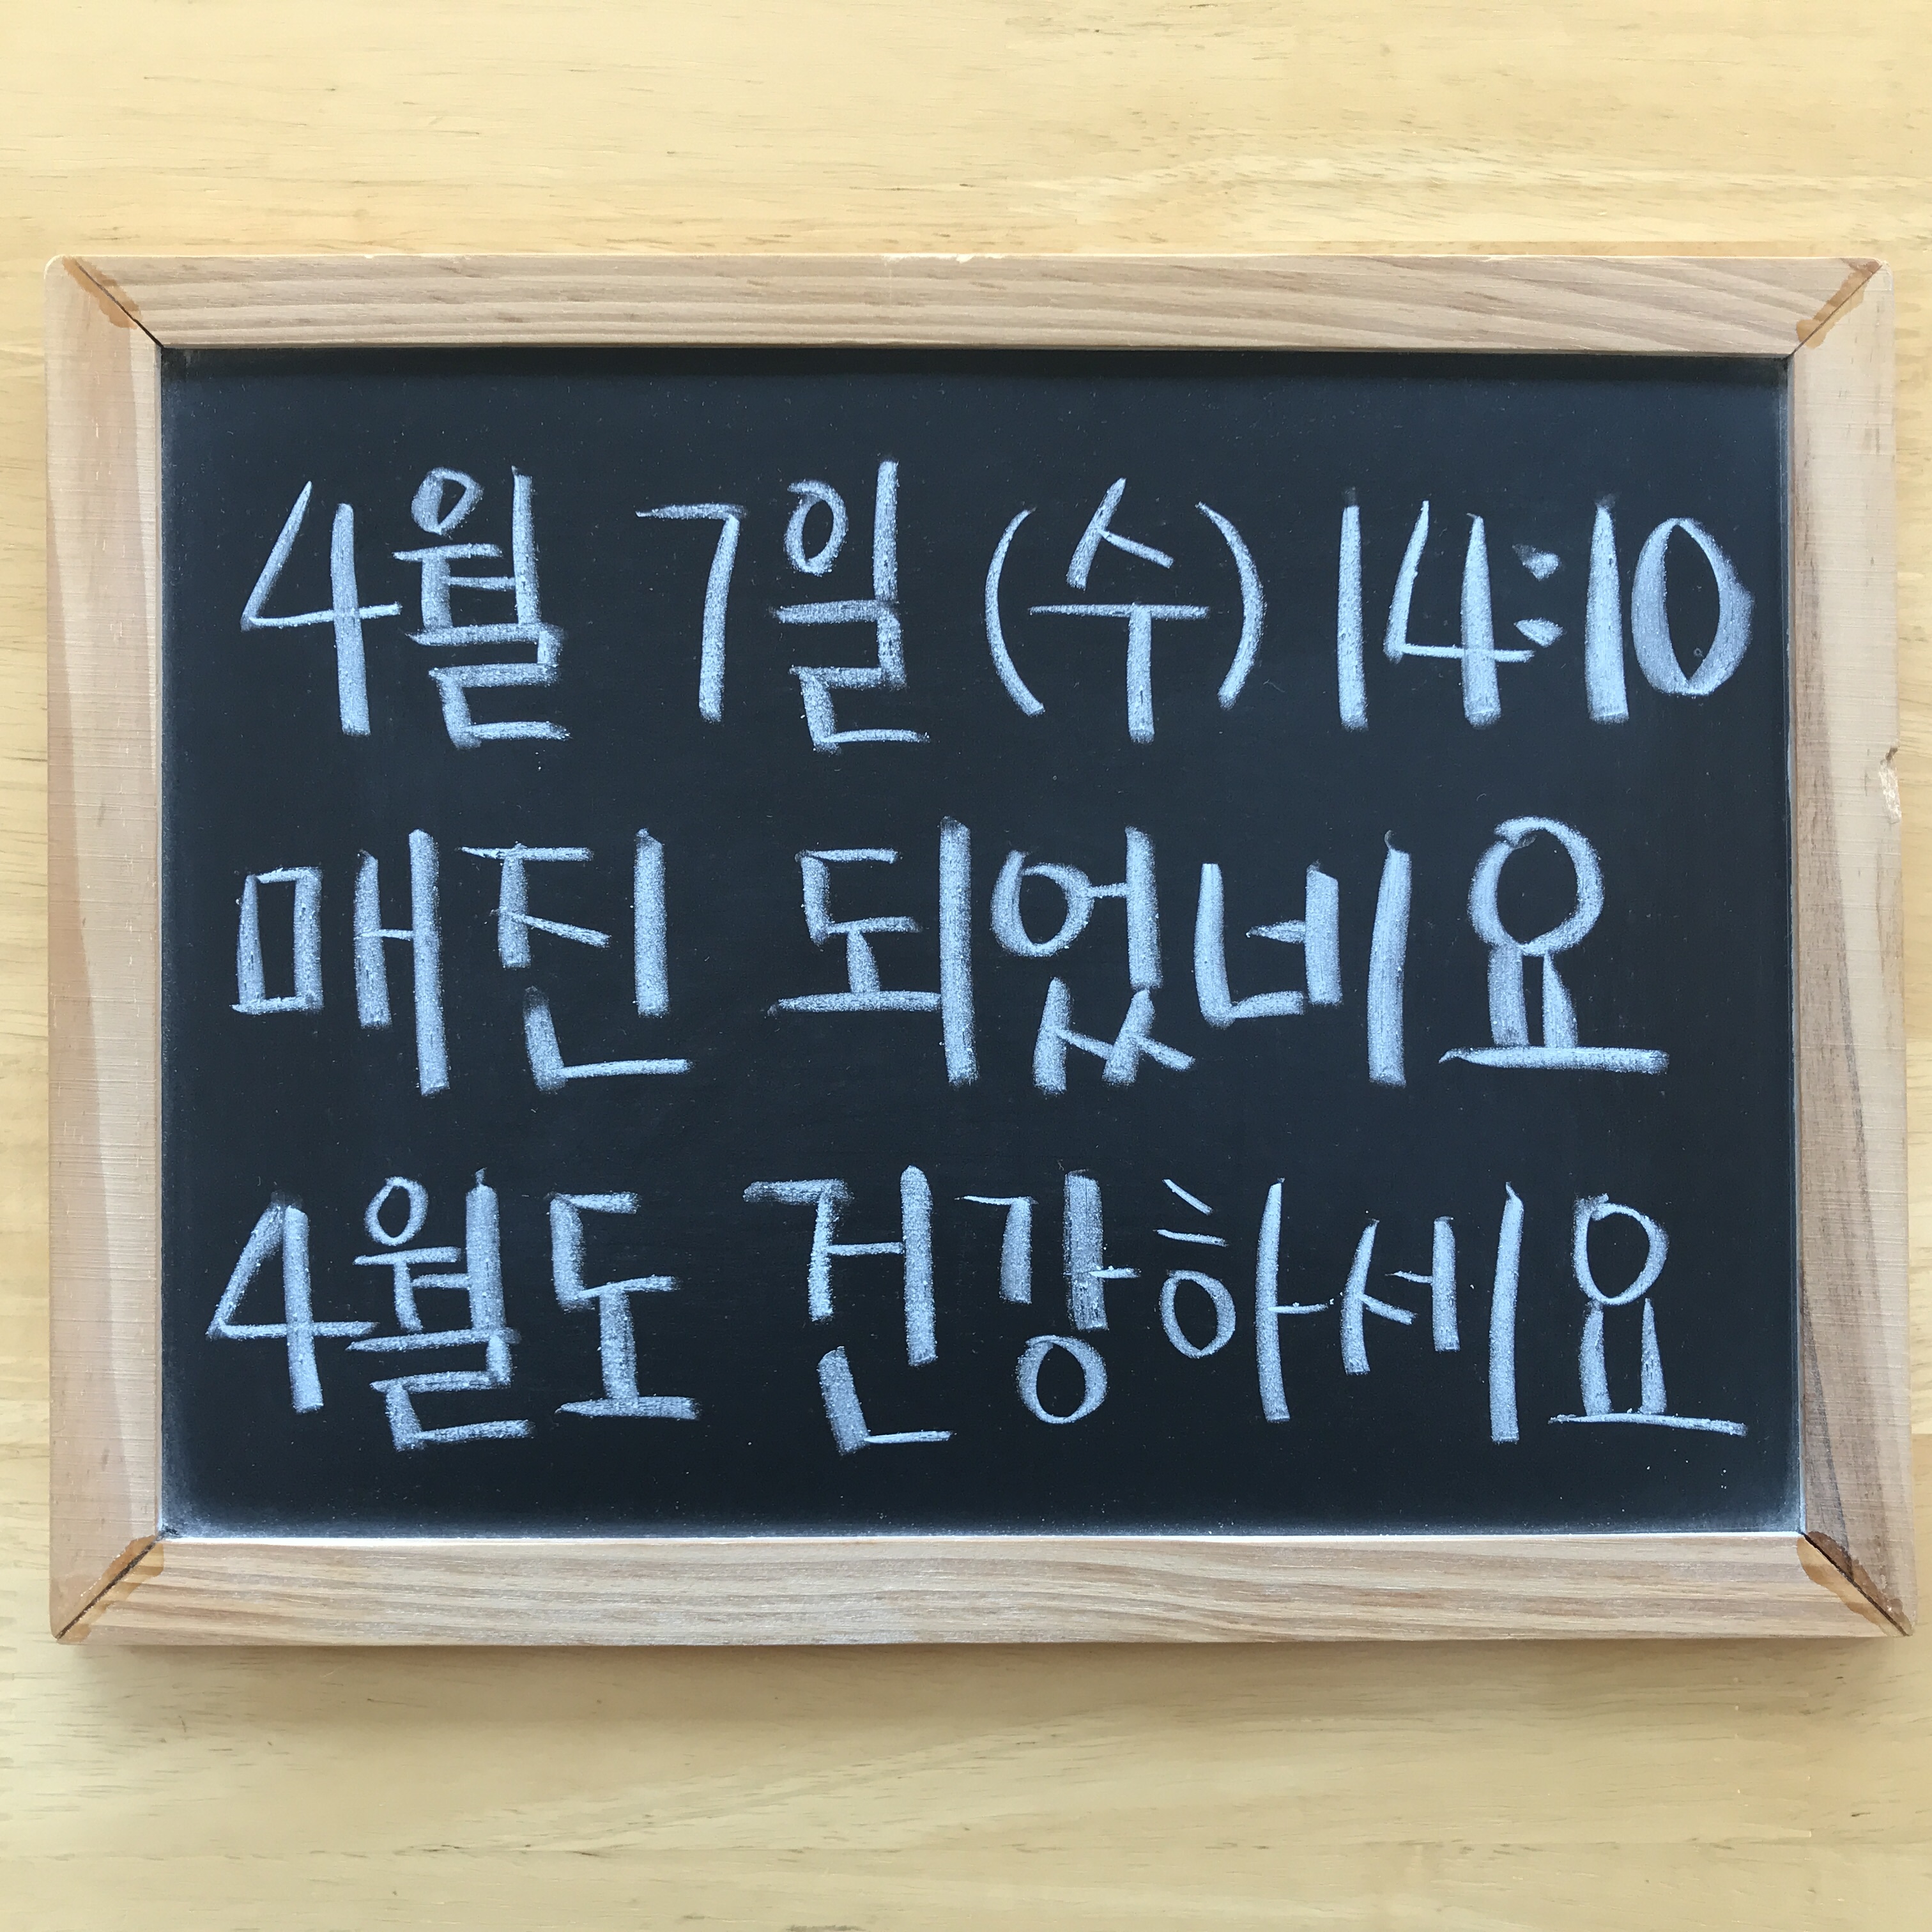 4월 7일 (수) 14:10
매진 되었네요
4월도 건강하세요